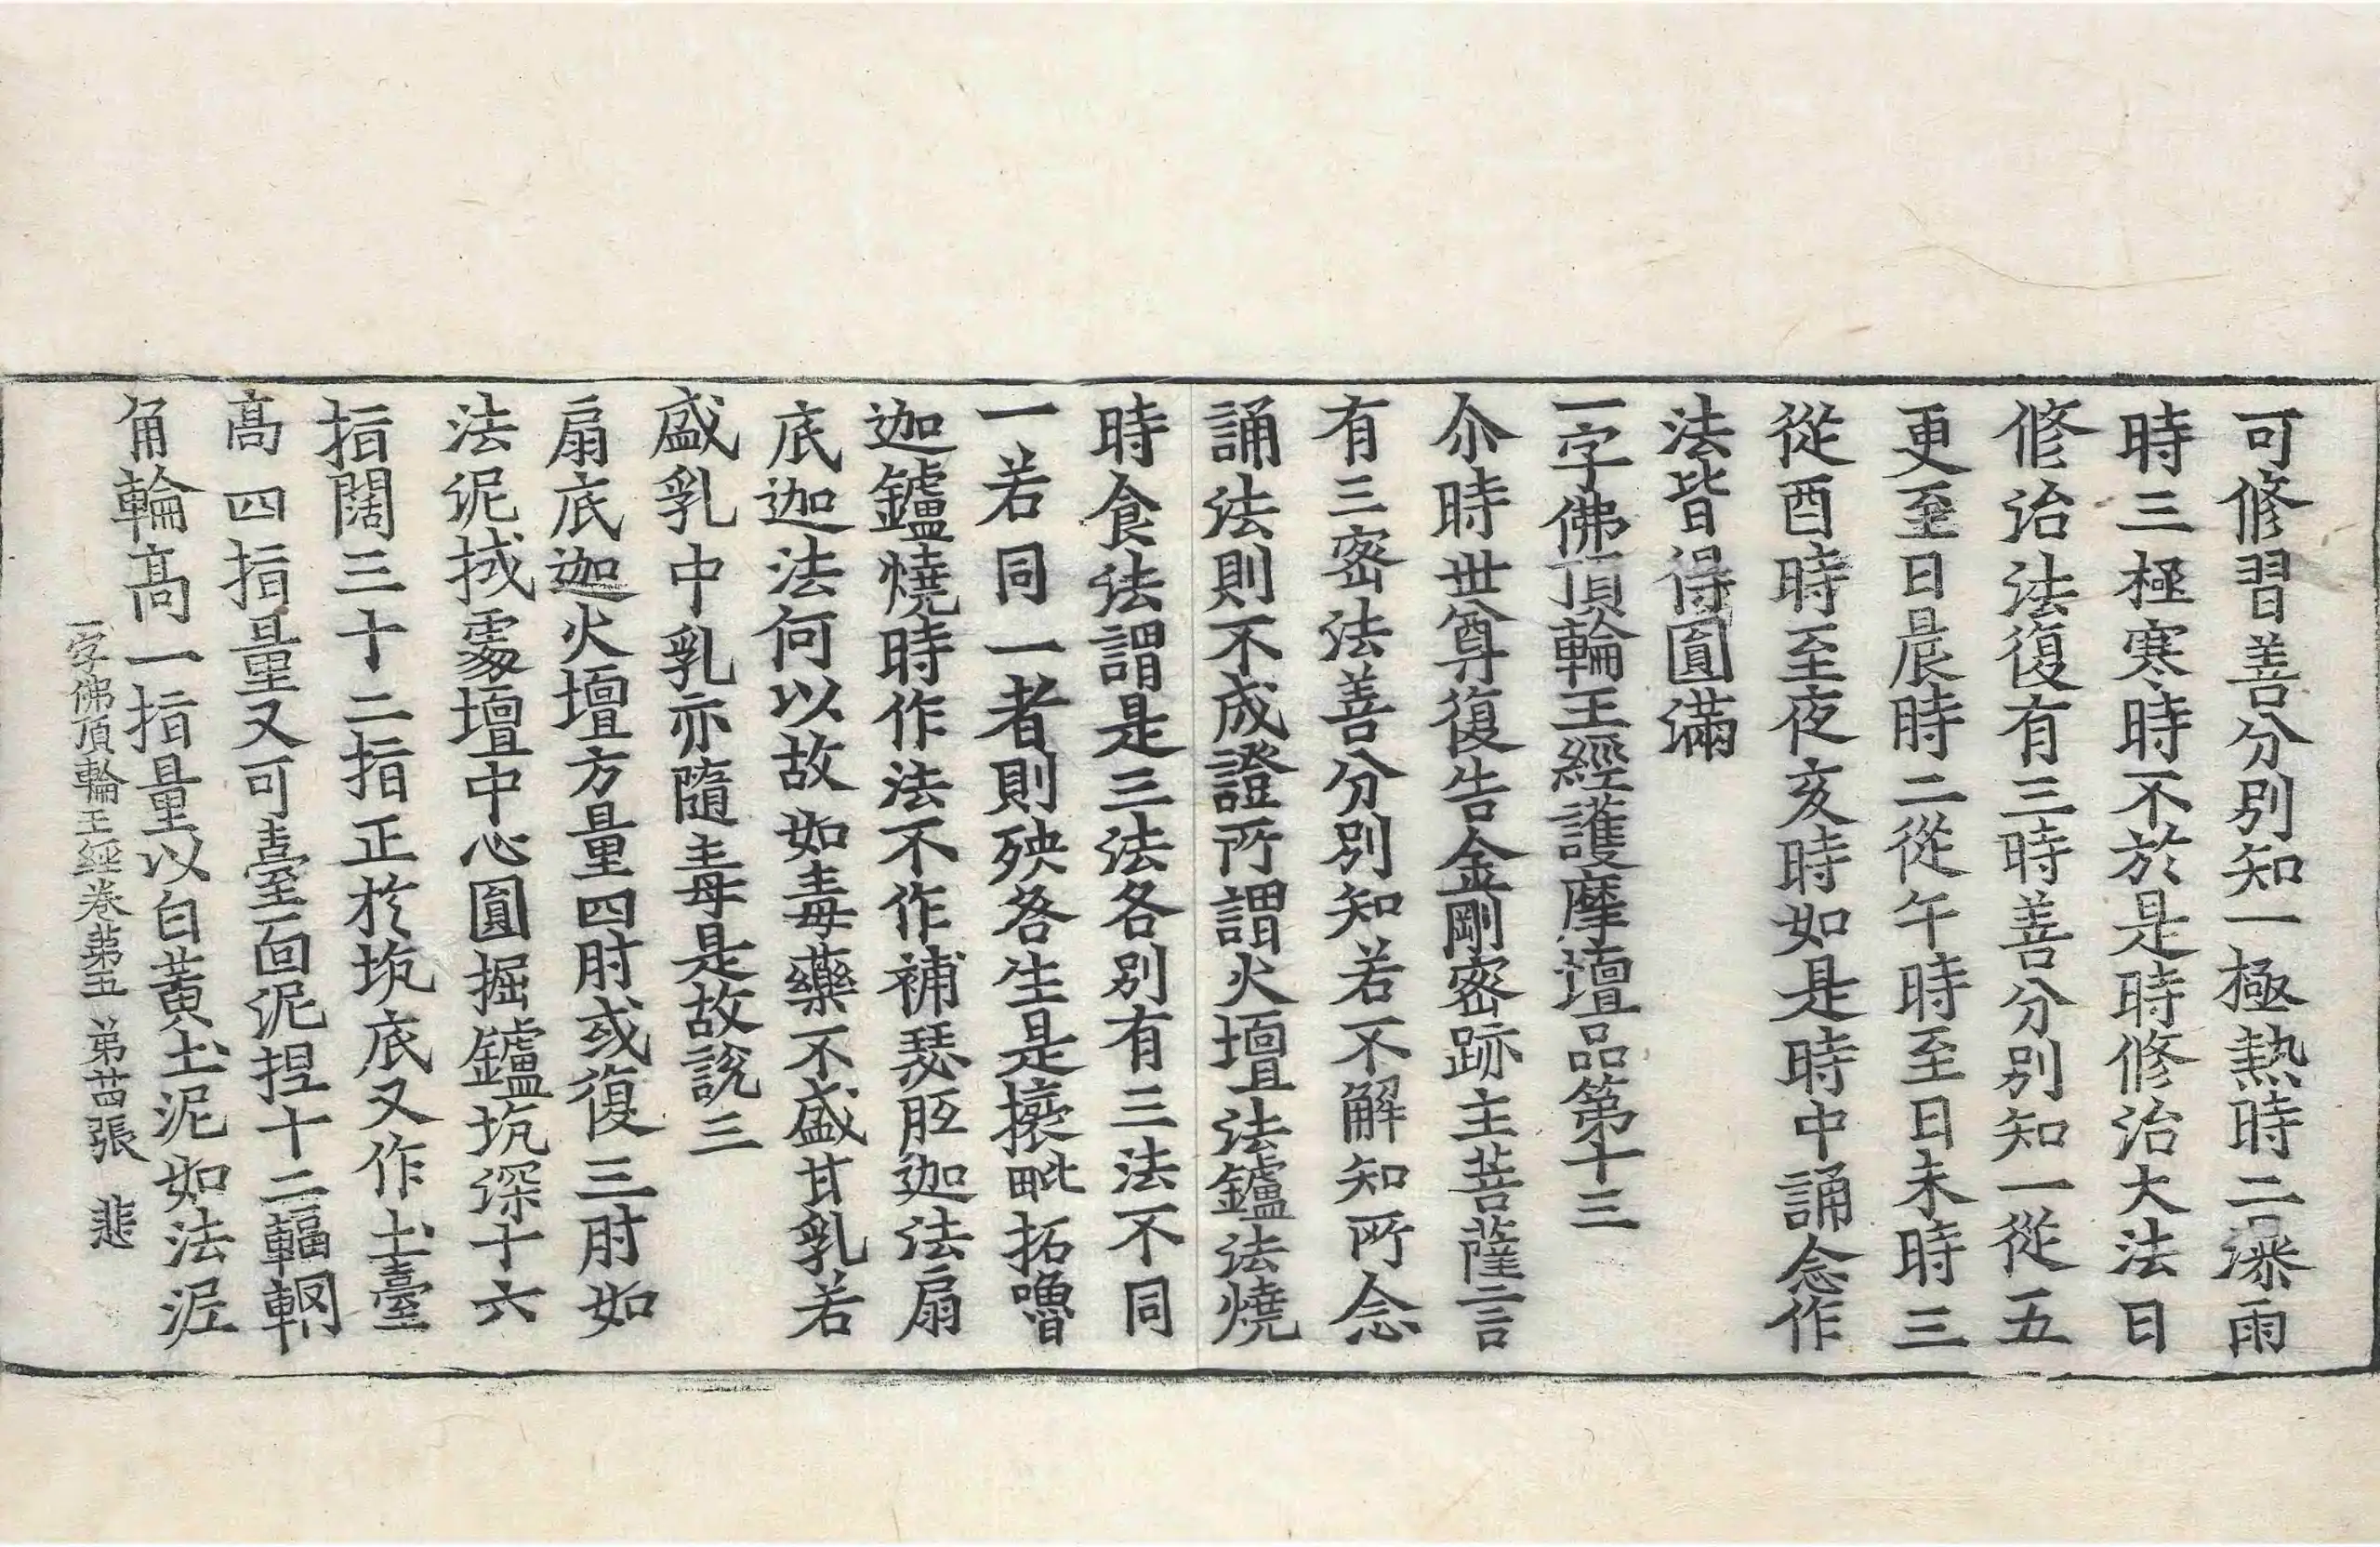 可修習善分別知一極熱時二瀑雨
時三極寒時不於是時修治大法日
修治法復有三時善分別知一從五
更至日晨時二從午時至日未時三
從酉時至夜亥時如是時中誦念作
法皆得圓滿
一字佛頂輪王經護摩壇品第十三
尒時世尊復告金剛密跡主菩薩言
有三密法善分別知若不解知所念
誦法則不成證所謂火壇法鑪法燒
時食法謂是三法各別有三法不同
一若同一者則殃咎生是㩲毗拓嚕
迦鑪燒時作法不作補瑟㕹迦法扇
底迦法何以故如毒藥不盛甘乳若
盛乳中乳亦隨毒是故說三
扇底迦火壇方量四肘或復三肘如
法泥拭處壇中心圓掘鑪坑深十六
指闊三十二指正於坑底又作土臺
高四指量又可臺面泥捏十二輻輞
角輪高一指量以白黃土泥如法泥
一字佛頂輪王經卷苐五 苐苖張 悲